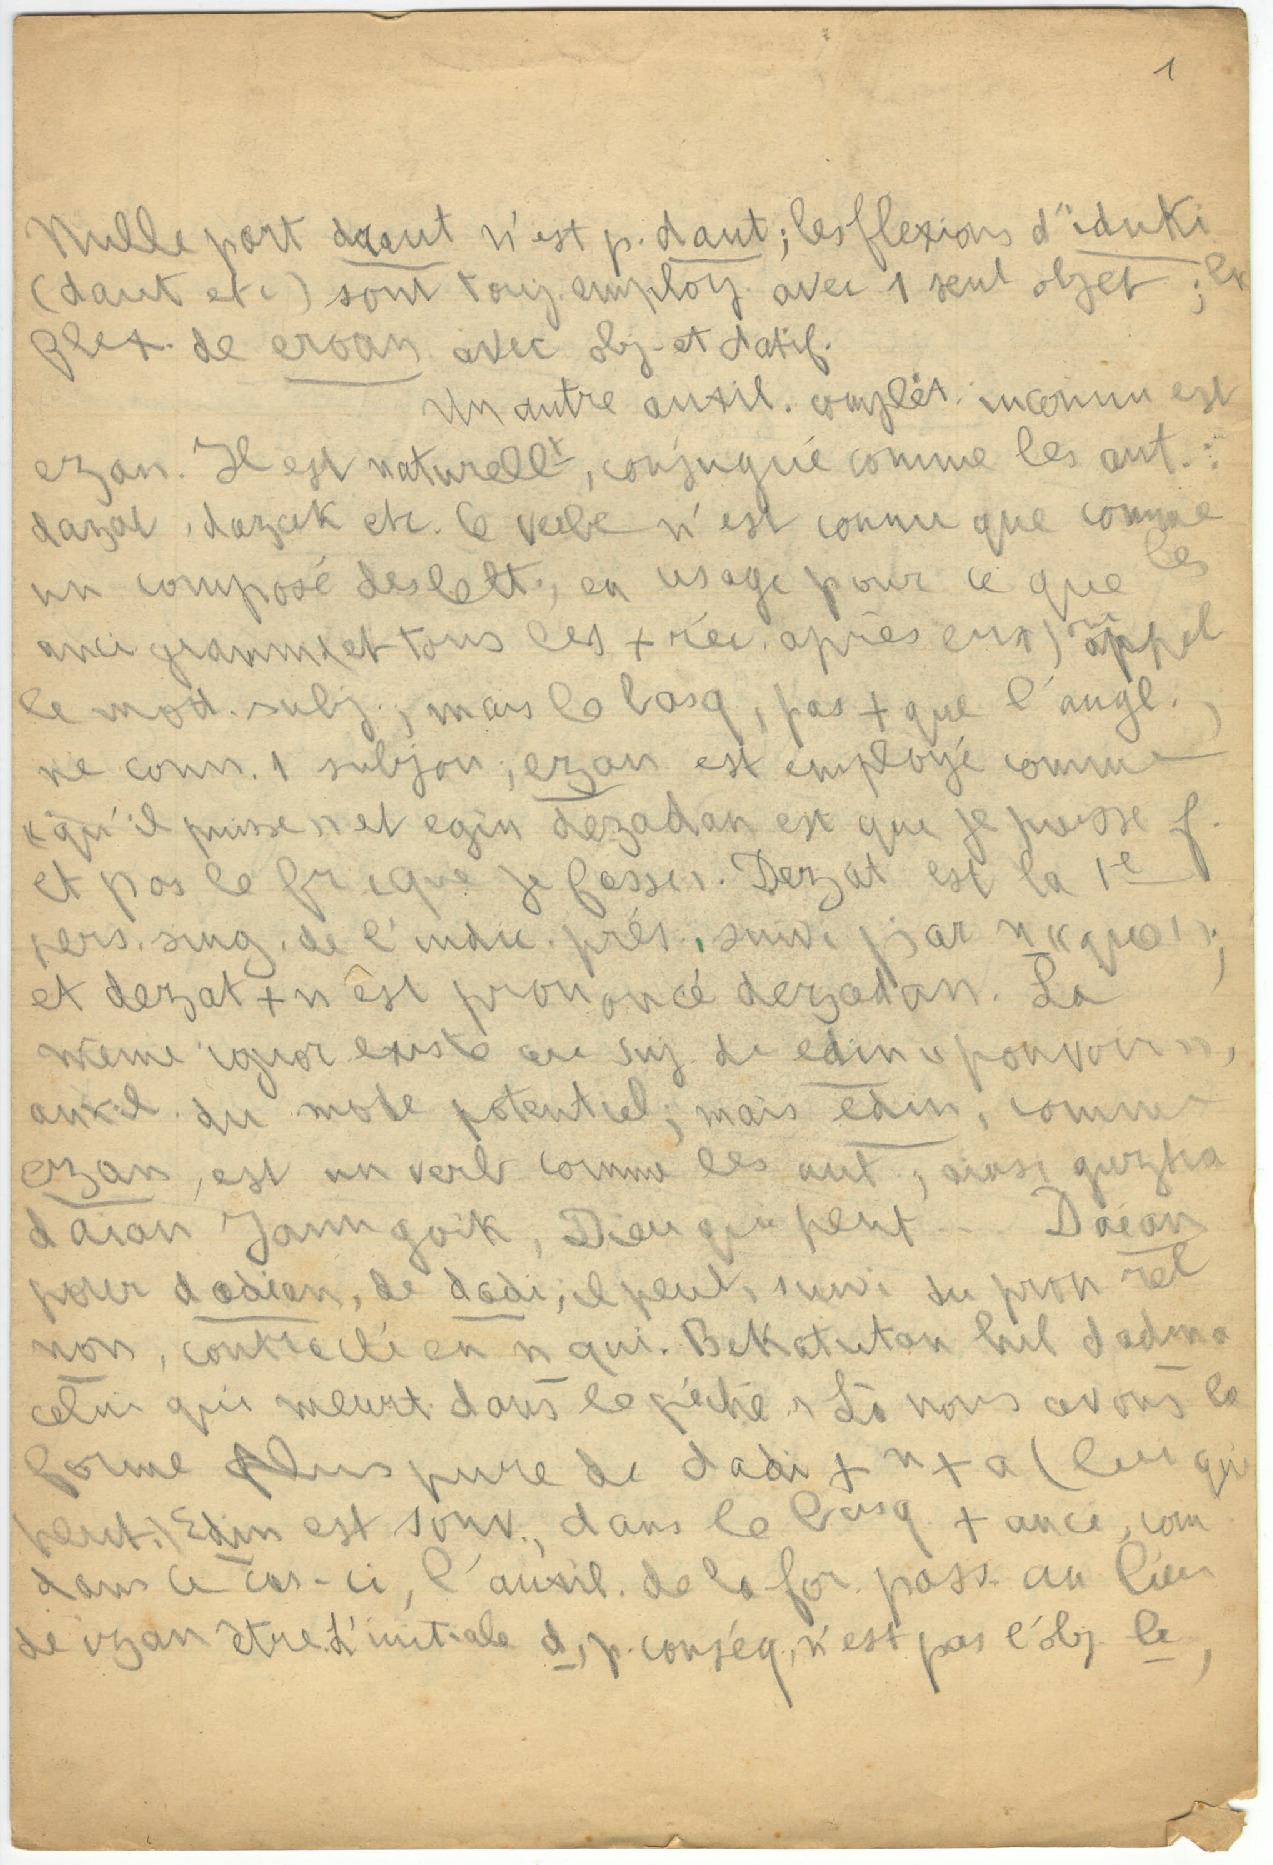 1
Nulle part daut n'est p. daut; les flexions d'iduki
(daut etc) sont touj. employ. avec 1 seul objet ; les
flex. de eroan avec obj. et datif.
Un autre auxil. complèt. inconnu est
ezan. Il est naturellt, conjugué comme les aut. :
dazat, dazak etc. Ce verbe n'est connu que comme
un composé des lett., en usage pour ce que les
anci gramm. et tous les + réc. après eux) appel
le mod. subj., mais le basq, pas + que l'angl.,
ne conn. 1 subjon; ezan est employé comme
«qu'il puisse» et egin dezadan est que je puisse f.
et pas le fr «que je fasse». Dezat est la 1e
pers. sing. de l'indic. prés., suivi par n «que»;
et dezat + n est prononcé dezadan. La
même ignor existe au suj. de edin «pouvoir»,
auxil. du mode potentiel; mais edin, comme
ezan, est un verb comme les aut, ainsi guztia
daian Jaun goik, Dieu qui peut ... Daian
pour dadian, de dadi, il peut, suivi du pron rel
non, contracté en n qui. Bekatutan hil dadina
celui qui meurt dans le péché. Là nous avons la
forme plus pure de dadi + n + a (lui qui
peut.) Edin est souv., dans le basq + anci, com
dans ce cas-ci, l'auxil. de la for. pass. au lieu
de izan être. L'initiale d, p. conséq., n'est pas l'obj. le,